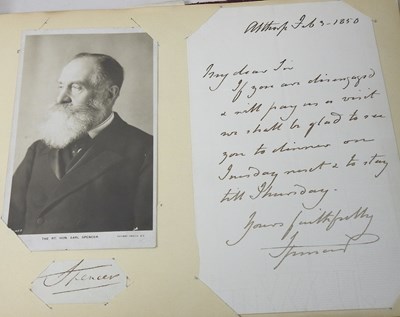 THE RT. HON. EARL SPENCER
Spencer
Althorp Feb 3 - 1850
My dear Sir
If you are disengaged
& will pay us a visit
we shall be glad to see
you to dinner on
Tuesday next & to stay
till Thursday.
Yours faithfully
Spencer